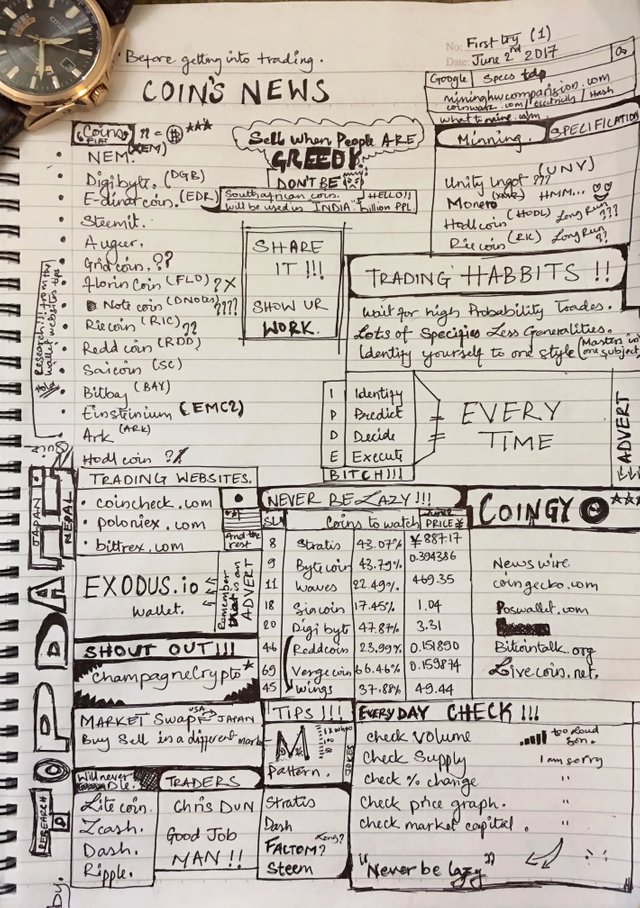 No: First try (1)
Date: June 2nd 2017
Before getting into trading.
COIN'S NEWS
Google Specs tdp
mininghwcomparision.com
coinwarz.com/electricity/Hash
what to mine.com
Minning. SPECIFICATION
Unity Ingot ??? (UNY)
Monero (XMR) HMM...
Hodlcoin (HODL) Long Run ???
Riecoin (RIC) Long Run ??
Coins ?? = ***
FIAT
NEM. (XEM)
Digibyte. (DGB)
E-dinarcoin. (EDR)
Steemit.
Auguer.
Gridcoin. ??
florin Coin (FLO) ? X
Note coin (DNotes) ????
Riecoin (RIC) ??
Redd coin (RDD)
Saicoin (SC)
Bitbay (BAY)
Einsteinium (EMC2)
Ark (ARK)
Hodl coin ?
Research!!! from thy wallet websites tips
Sell when People ARE
GREEDY.
DON'T BE
Southafrican coin.
will be used in INDIA"
HELLO!!
billion PPL.
SHARE
IT !!!
SHOW UR
WORK.
TRADING HABBITS !!
wait for high Probability Trades.
Lots of Specifies Less Generalities.
Identify yourself to one style (Masters in one subject)
I Identify
P Predict
D Decide
E Execute
BITCH!!!
EVERY
TIME
ADVERT
TRADING WEBSITES.
coincheck.com
poloniex.com
bittrex.com
And the rest
JAPAN
NEPAL
EXODUS.io
wallet.
Remember that is an ADVERT
SHOUT OUT!!!
ChampagneCrypto*
MARKET Swap USA JAPAN
Buy Sell in a different market
NEVER BE LAZY!!!
SLN Coins to watch PRICE ¥
8 Stratis 43.07% ¥887.17
9 Bytecoin 43.79% 0.394386
11 Waves 22.49% 469.35
18 Siacoin 17.45% 1.04
20 Digibyt 47.87% 3.31
46 Reddcoin 23.99% 0.151890
69 Vergecoin 66.46% 0.159874
45 Wings 37.88% 49.44
COINGY ***
News wire.
coingecko.com
Poswallet.com
Bitcointalk.org
Livecoin.net.
TIPS !!!
M
Pattern.
JOKES
EVERYDAY CHECK !!!
check Volume too loud son.
check Supply I am sorry
check % change "
Check price graph. "
Check market capital. "
"Never be lazy"
Will never Die.
Litecoin.
Zcash.
Dash.
Ripple.
TRADERS
Chris Dun
Good Job
MAN !!
Stratis
Dash
FALTOM?
Steem
RESEARCH
by.